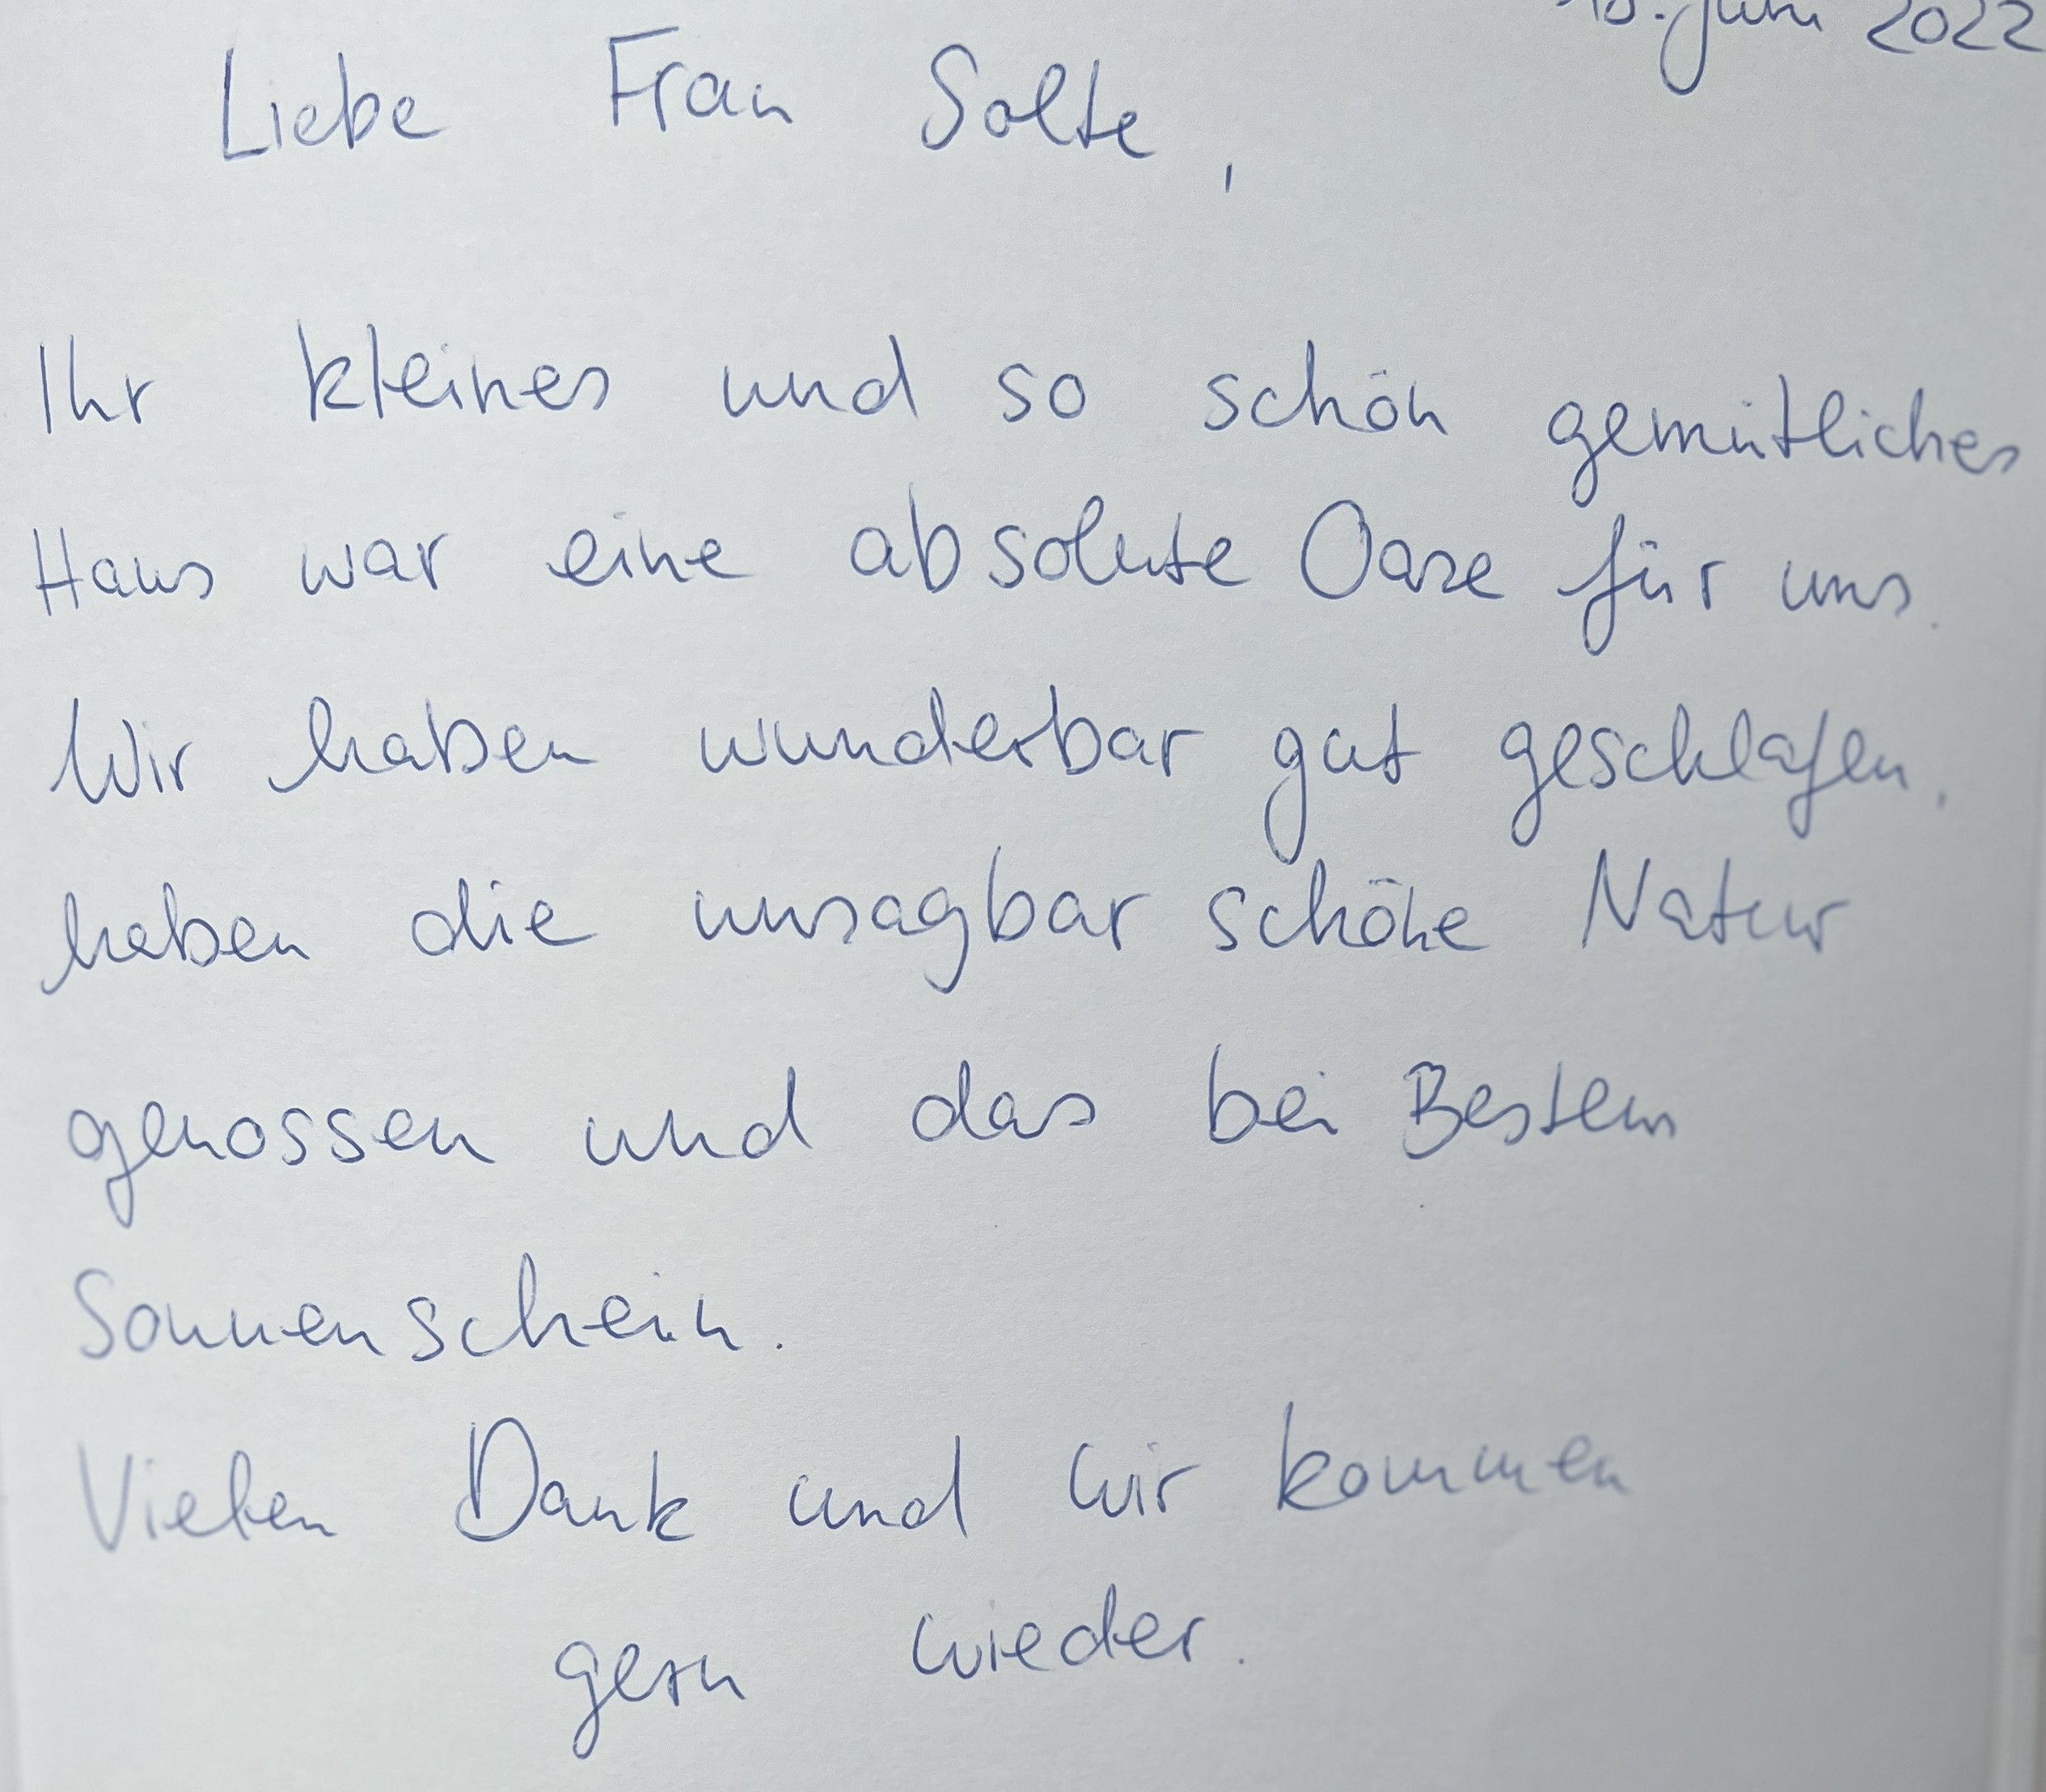 Juni 2022
Liebe Frau Solte,
Ihr kleines und so schön gemütliches
Haus war eine absolute Oase für uns.
Wir haben wunderbar gut geschlafen,
haben die unsagbar schöne Natur
genossen und das bei Bestem
Sonnenschein.
Vielen Dank und wir kommen
gern wieder.